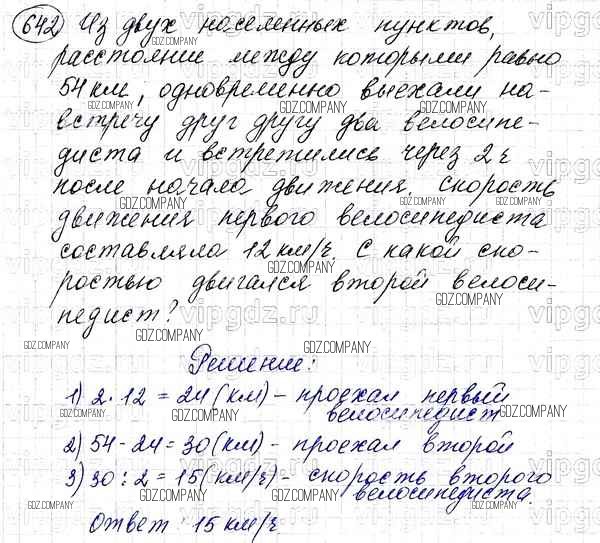 642 Из двух населенных пунктов,
расстояние между которыми равно
54 км, одновременно выехали на-
встречу друг другу два велосипе-
диста и встретились через 2 ч
после начала движения. Скорость
движения первого велосипедиста
составляла 12 км/ч. С какой ско-
ростью двигался второй велоси-
педист?
Решение:
1) 2 · 12 = 24 (км) - проехал первый
велосипедист
2) 54 - 24 = 30 (км) - проехал второй
3) 30 : 2 = 15 (км/ч) - скорость второго
велосипедиста.
Ответ: 15 км/ч
GDZ.COMPANY
vipgdz.ru